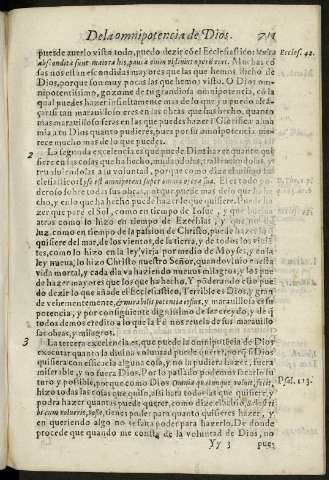 De la omnipotencia de Dios. 711
puede auerlo visto todo, puedo dezir cõ el Ecclesiastico: Multa Eccles. 43.
abscondita sunt maiora his, pauca enim vidimus operũ eius. Muchas co
sas nos estan escondidas mayores que las que hemos dicho de
Dios, porque son muy pocas las que hemos visto. O Dios om-
nipotentissimo, gozome de tu grandiosa omnipotencia, cõ la
qual puedes hazer infinitamente mas de lo que yo puedo alcã-
çar: si tan marauilloso eres en las obras que has hecho, quanto
mas marauilloso seras en las que puedes hazer? Glorifica
mia a tu Dios quanto pudieres, pues por su omnipotencia me-
rece mucho mas de lo que puedes.
2 La segunda excelencia es que puede Dios hazer quanto qui
siere en las cosas que ha hecho, mudandolas, trastornandolas, y
trocandolas a su voluntad, porque como dize el mismo
clesiastico: Ipse est omnipotens super omnia opera sua. El es todo po-
deroso sobre todas sus obras, porque puede mas que
cho, y en lo que ha hecho puede hazer lo que quisiere. Puede ha-
zer que pare el Sol, como en tiempo de Iosue, y que buelua
atras como lo hizo en tiempo de Ezechias, y que no dè
luz, como en tiempo de la passion de Christo, puede hazer lo q̃
quisiere del mar, de los vientos, de la tierra, y de todos los viuien
tes, como lo hizo en la ley vieja por medio de Moyses, y en la
ley nueua, lo hizo Christo nuestro Señor, quando viuio en esta
vida mortal, y cada dia va haziendo nueuos milagros, y los pue
de hazer mayores que los que ha hecho. Y põderando esto pue
do dezir lo que añade el Ecclesiastico, Terrible es Dios, y gran
de vehementemente, & mirabilis potentia ipsius, y marauillosa es su
potencia, y por consiguiente dignissimo de ser creydo, y de q̃
todos demos credito a lo que la Fè nos reuela de sus marauillo
sas obras, y milagros.
3 La tercera excelencia es, que puede la omnipotẽcia de Dios
executar quanto la diuina voluntad puede querer, porq̃ si Dios
quisiera con eficacia alguna cosa, y no la pudiera hazer, fuera
miserable, y no fuera Dios. Por lo passado podemos sacar lo fu
turo y possible, porque como Dios Omnia quæcunque voluit, fecit, Psal. 113.
hizo todas las cosas que quiso, assi hara todas las que quisiere, y
podra hazer quantas puede querer, como dize el Sabio:
bi cum volueris, posse, tienes poder para quanto quisieres hazer, y
en queriendo algo no te falta poder para hazerlo. De donde
procede que quando me consta de la voluntad de Dios, no
Yy 3 pue-